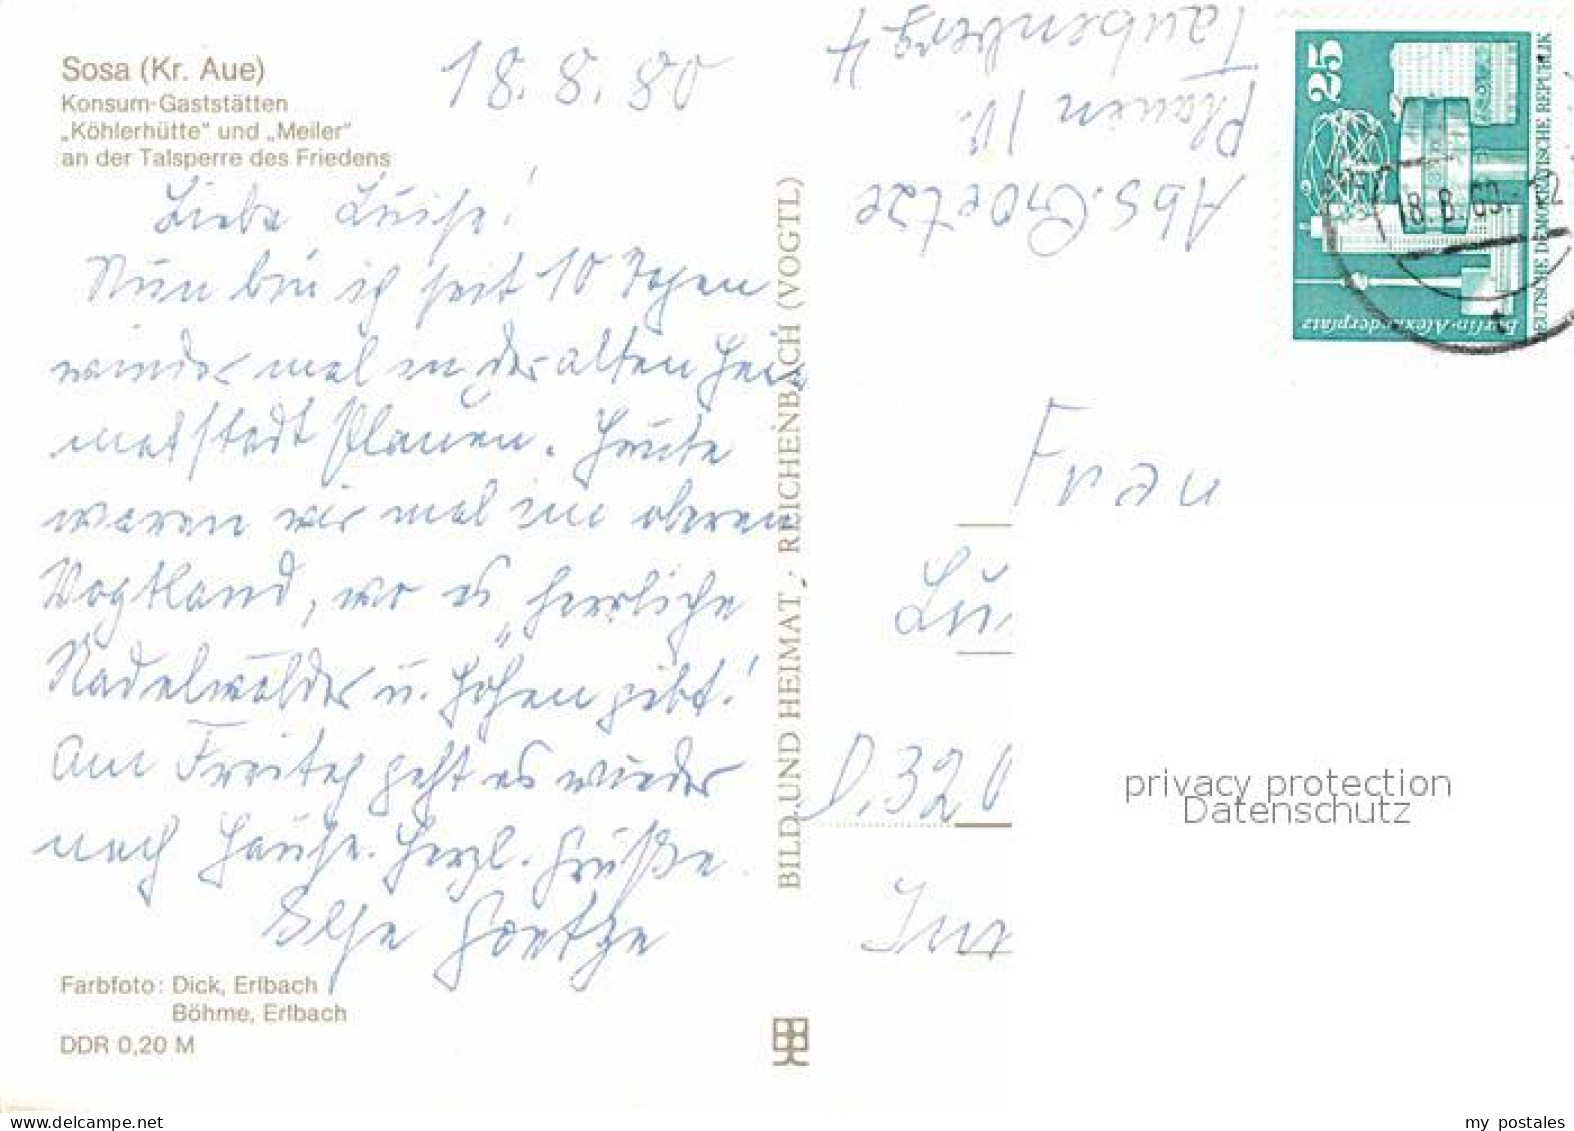 Sosa (Kr. Aue)
Konsum-Gaststätten
„Köhlerhütte" und „Meiler"
an der Talsperre des Friedens
18.8.80
Liebe Luise!
Nun bin ich seit 10 Tagen
wieder mal in der alten Hei-
matstadt Plauen. Heute
waren wir mal im oberen
Vogtland, wo es herrliche
Nadelwälder u. Höhen gibt!
Am Freitag geht es wieder
nach Hause. Herzl. Grüße
Ilse Goetze
Farbfoto: Dick, Erlbach
Böhme, Erlbach
DDR 0,20 M
BILD UND HEIMAT, REICHENBACH (VOGTL)
Abs. Goetze
Plauen
Taubenberg 4
25
DEUTSCHE DEMOKRATISCHE REPUBLIK
Berlin-Alexanderplatz
Frau
D. 320
privacy protection
Datenschutz
www.delcampe.net
my_postales